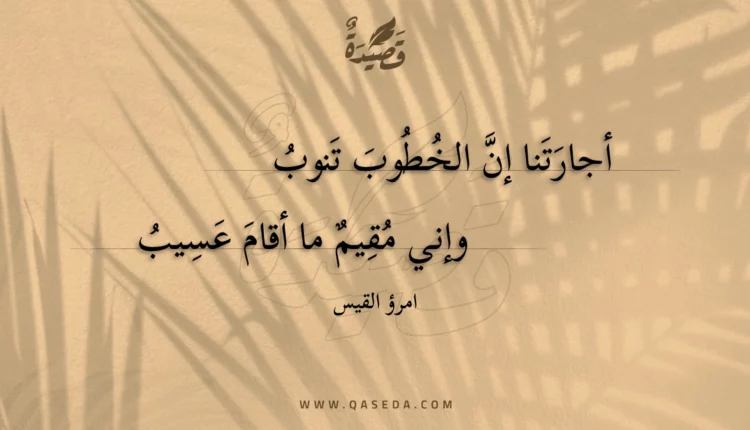 قَصِيدَةٌ
أجارَتَنا إنَّ الخُطُوبَ تَنوبُ
وإني مُقِيمٌ ما أقامَ عَسِيبُ
امرؤ القيس
WWW.QASEDA.COM